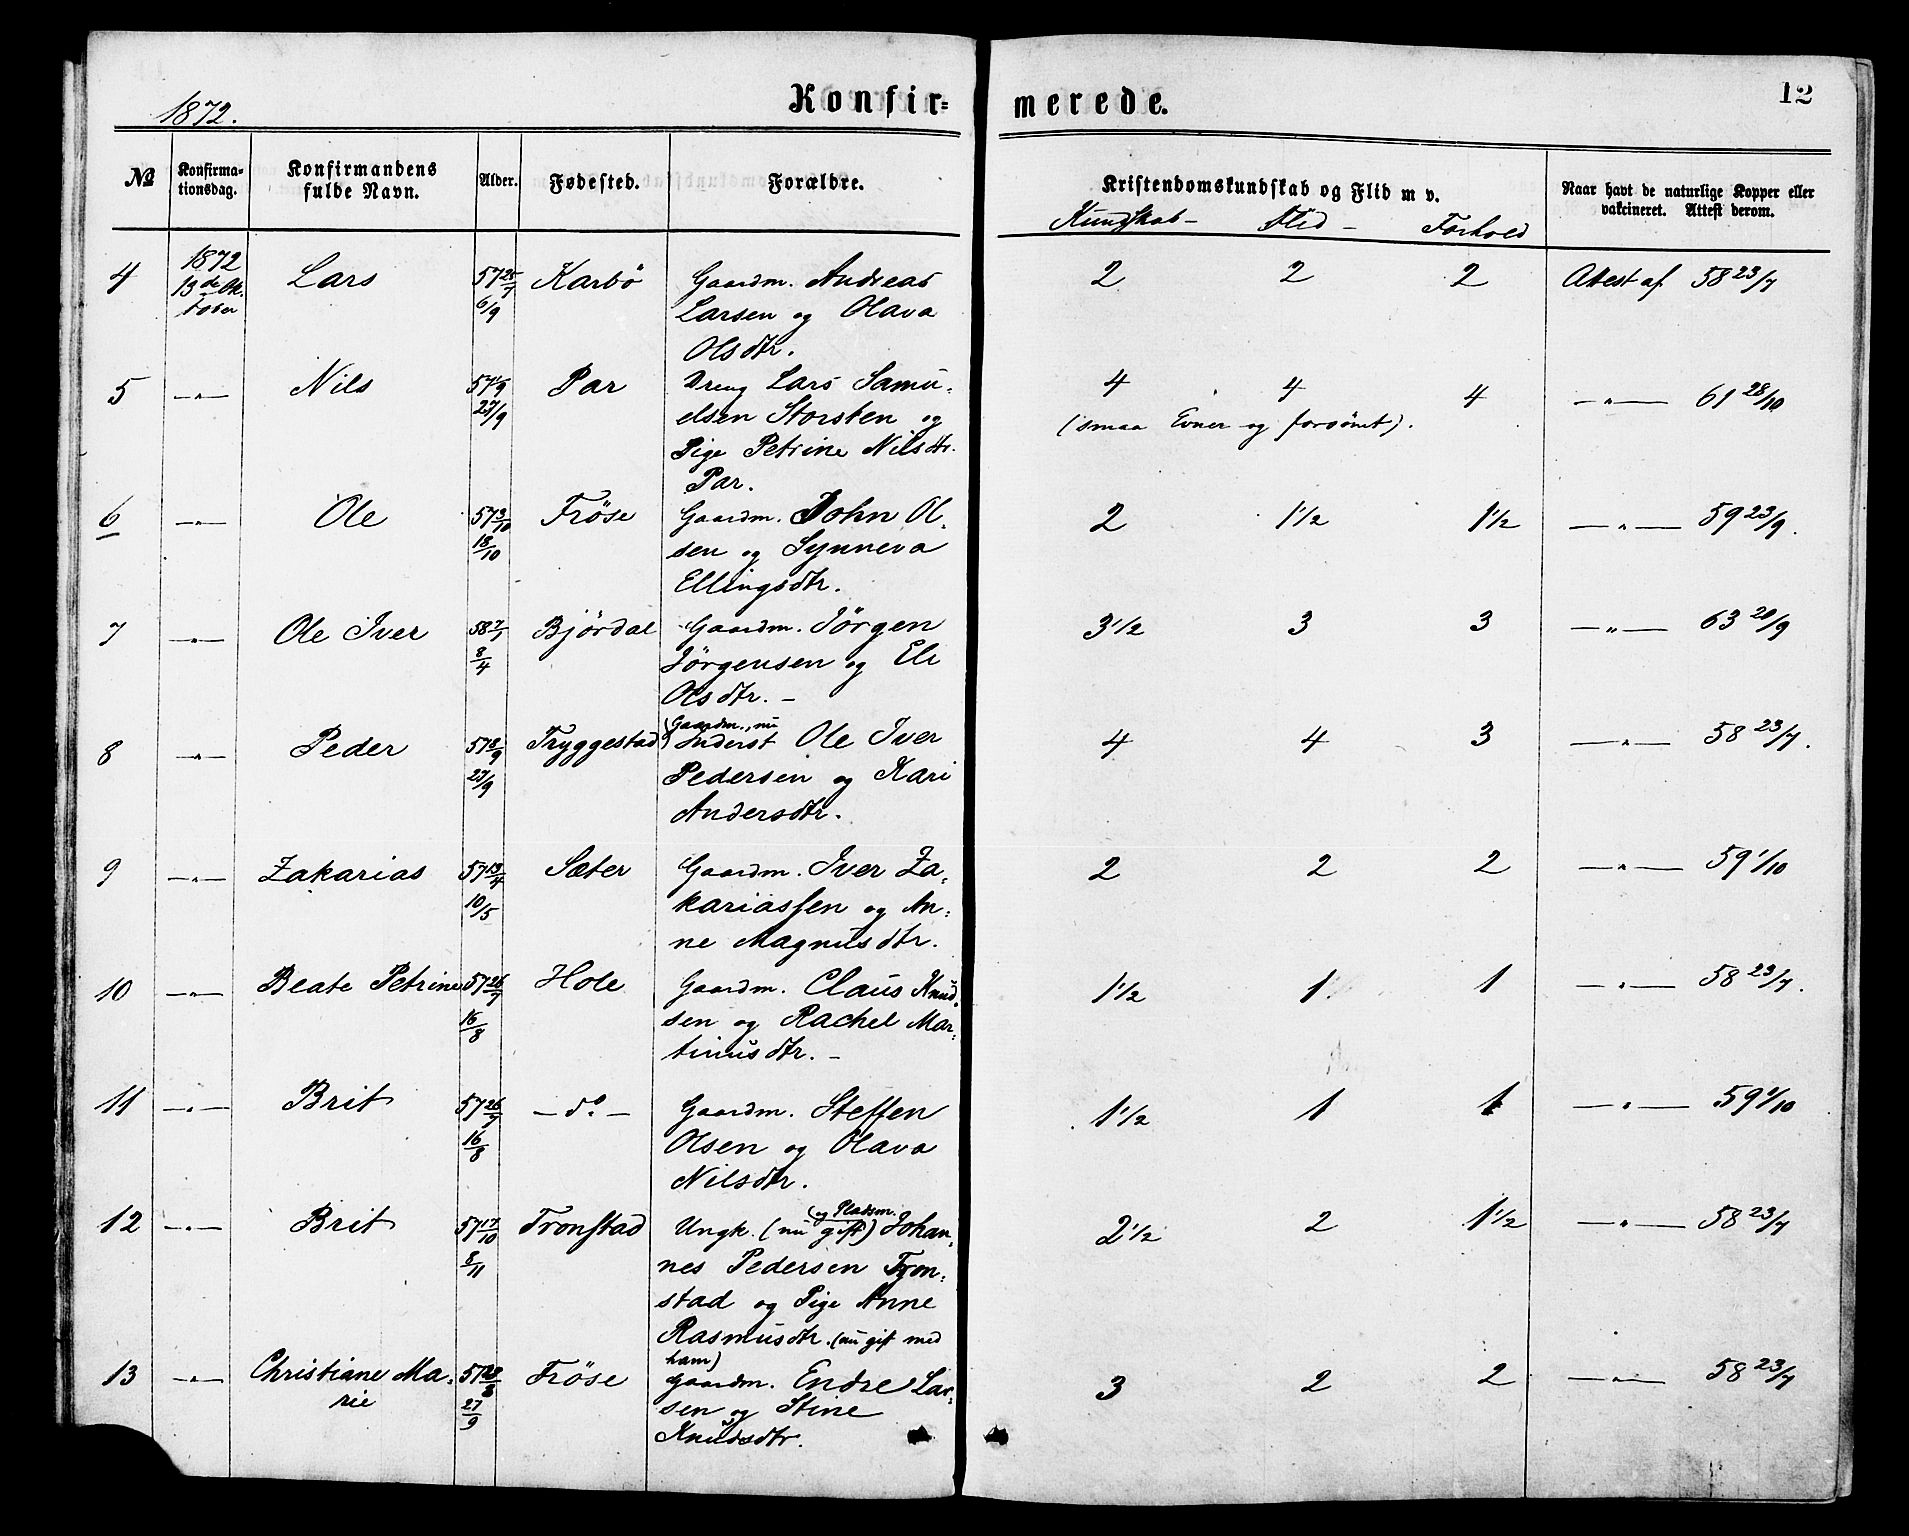 1872.
Konfir-
merede.
12
No
Konfirma-
tionsdag.
Konfirmandens
fulde Navn.
Alder.
Fødested.
Forældre.
Kristendomskundskab og Flid m v.
Kundskab - Flid - Forhold
Naar havt de naturlige Kopper eller
vakcineret. Attest derom.
4 1872 Lars 57 25/7 Karbö Gaardm. Andreas 2 2 2 Attest af 58 23/7
13de Ok- 6/9 Larsen og Olava
tober Olsdtr.
5 -"- Nils 57 1/9 Par Dreng Lars Samu- 4 4 4 -"- 61 28/10
27/9 elsen Storsten og (smaa Evner og forsömt).
Pige Petrine Nilsdtr.
Par.
6 -"- Ole 57 3/10 Fröse Gaardm. John Ol- 2 1½ 1½ -"- 59 23/9.
18/10 sen og Synneva
Ellingsdtr.
7 -"- Ole Iver 58 7/1 Björdal Gaardm. Jörgen 3½ 3 3 -"- 63 20/9
8/4 Jörgensen og Eli
Olsdtr. -
(Gaardm., nu
8 -"- Peder 57 8/9 Tryggestad Inderst Ole Iver 4 4 3 -"- 58 23/7.
27/9 Pedersen og Kari
Andersdtr.
9 -"- Zakarias 57 13/4 Sæter Gaardm. Iver Za- 2 2 2 -"- 59 1/10
10/5 kariassen og An-
ne Magnusdtr.
10 -"- Beate Petrine 57 26/7 Hole Gaardm. Claus Knud- 1½ 1 1 -"- 58 23/7.
16/8 sen og Rachel Mar-
tinusdtr. -
11 -"- Brit 57 26/7 - do - Gaardm. Steffen 1½ 1 1 -"- 59 1/10
16/8 Olsen og Olava
Nilsdtr.
og Pladsm.
12 -"- Brit 57 17/10 Tronstad Ungk. (nu gift) Johan- 2½ 2 1½ -"- 58 23/7
8/11 nes Pedersen Tron-
stad og Pige Anne
Rasmusdtr. (nu gift med
ham)
13 -"- Christiane Ma- 57 28/8 Fröse Gaardm. Endre Lar- 3 2 2 -"- 58 23/7
rie 27/9 sen og Stine
Knudsdtr.